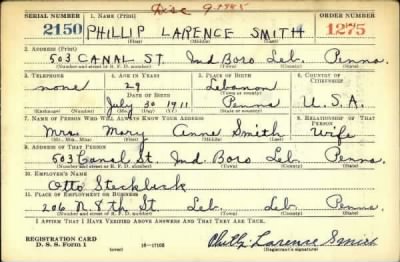 Disc
SERIAL NUMBER 1. NAME (Print) ORDER NUMBER
2150 PHILLIP LARENCE SMITH 1275
(First) (Middle) (Last)
2. ADDRESS (Print)
503 CANAL ST. Ind Boro Leb. Penna.
(Number and street or R. F. D. number) (Town) (County) (State)
3. TELEPHONE 4. AGE IN YEARS 5. PLACE OF BIRTH 6. COUNTRY OF CITIZENSHIP
none 29 Lebanon
DATE OF BIRTH (Town or county)
July 30 1911 Penna U.S.A.
(Exchange) (Number) (Mo.) (Day) (Yr.) (State or country)
7. NAME OF PERSON WHO WILL ALWAYS KNOW YOUR ADDRESS 8. RELATIONSHIP OF THAT PERSON
Mrs. Mary Anne Smith Wife
(Mr., Mrs., Miss) (First) (Middle) (Last)
9. ADDRESS OF THAT PERSON
503 Canal St. Ind Boro Leb. Penna.
(Number and street or R. F. D. number) (Town) (County) (State)
10. EMPLOYER'S NAME
Otto
11. PLACE OF EMPLOYMENT OR BUSINESS
206 N. 8th St. Leb. Leb. Penna.
(Number and street or R. F. D. number) (Town) (County) (State)
I AFFIRM THAT I HAVE VERIFIED ABOVE ANSWERS AND THAT THEY ARE TRUE.
REGISTRATION CARD
D. S. S. Form 1 (over) 16—17105 Phillip Larence Smith
(Registrant's signature)